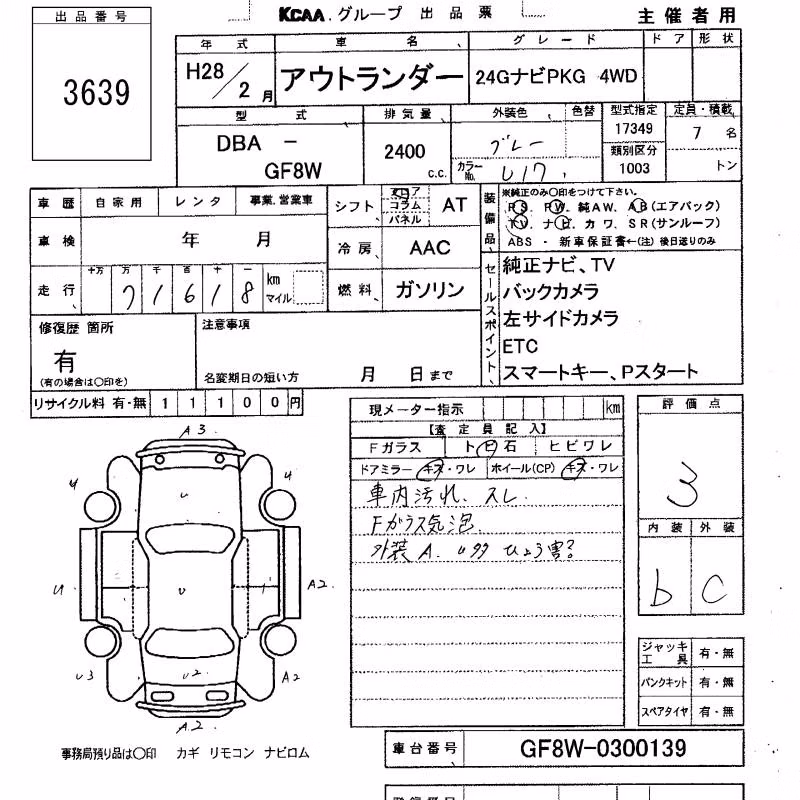 KCAA.グループ 出品票 主催者用
出品番号
3639
年式 車名 グレード ドア 形状
H28/2月 アウトランダー 2.4GナビPKG 4WD
型式 排気量 外装色 色替 型式指定 定員・積載
DBA - GF8W 2400 c.c. グレー カラーNo. U17 17349 7名
類別区分
1003 トン
車歴 自家用 レンタ 事業.営業車
シフト フロア コラム パネル AT
車検 年 月
冷房 AAC
走行 十万 万 千 百 十 一
71618 km マイル
燃料 ガソリン
装備品 ※純正のみ〇印をつけて下さい。
PS. PW. 純AW. AB(エアバック)
TV. ナビ. カワ. SR(サンルーフ)
ABS - 新車保証書←(注) 後日送りのみ
セールスポイント
純正ナビ、TV
バックカメラ
左サイドカメラ
ETC
スマートキー、Pスタート
修復歴 箇所
有
(有の場合は〇印を)
注意事項
名変期日の短い方 月 日まで
リサイクル料 有・無 11100円
現メーター指示 km
【査定員記入】
Fガラス トビ石 ヒビワレ
ドアミラー キズ・ワレ ホイール(CP) キズ・ワレ
車内汚れ、スレ
Fガラス気泡.
外装A.U多 ひょう害?
評価点
3
内装 外装
b C
ジャッキ工具 有・無
パンクキット 有・無
スペアタイヤ 有・無
A3
U U
U
U U 1 A2
U3 U2 A2
A2
事務局預り品は〇印 カギ リモコン ナビロム
車台番号 GF8W-0300139